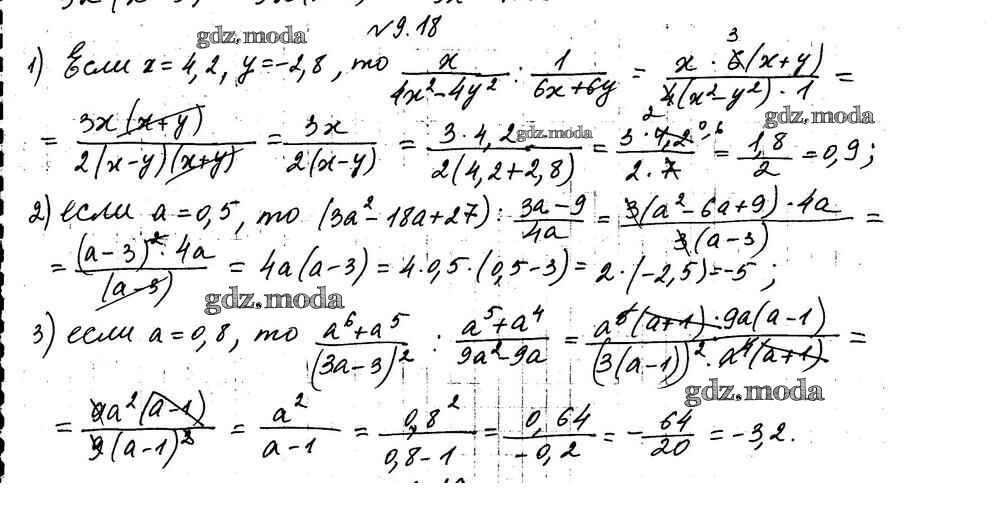 №9.18
gdz.moda
1) Если x = 4,2, y = -2,8, то x/(4x²-4y²) : 1/(6x+6y) = (x · 6(x+y))/(4(x²-y²) · 1) =
3
2
gdz.moda
= (3x(x+y))/(2(x-y)(x+y)) = 3x/(2(x-y)) = (3·4,2)/(2(4,2+2,8)) = (3·4,2)/(2·7) = 1,8/2 = 0,9;
gdz.moda
0,6
2) если a = 0,5, то (3a²-18a+27) : (3a-9)/4a = (3(a²-6a+9)·4a)/(3(a-3)) =
= ((a-3)²·4a)/(a-3) = 4a(a-3) = 4·0,5·(0,5-3) = 2·(-2,5) = -5;
gdz.moda
3) если a = 0,8, то (a⁶+a⁵)/(3a-3)² : (a⁵+a⁴)/(9a²-9a) = (a⁵(a+1)·9a(a-1))/((3(a-1))²·a⁴(a+1)) =
gdz.moda
= (9a²(a-1))/(9(a-1)²) = a²/(a-1) = 0,8²/(0,8-1) = 0,64/(-0,2) = -64/20 = -3,2.